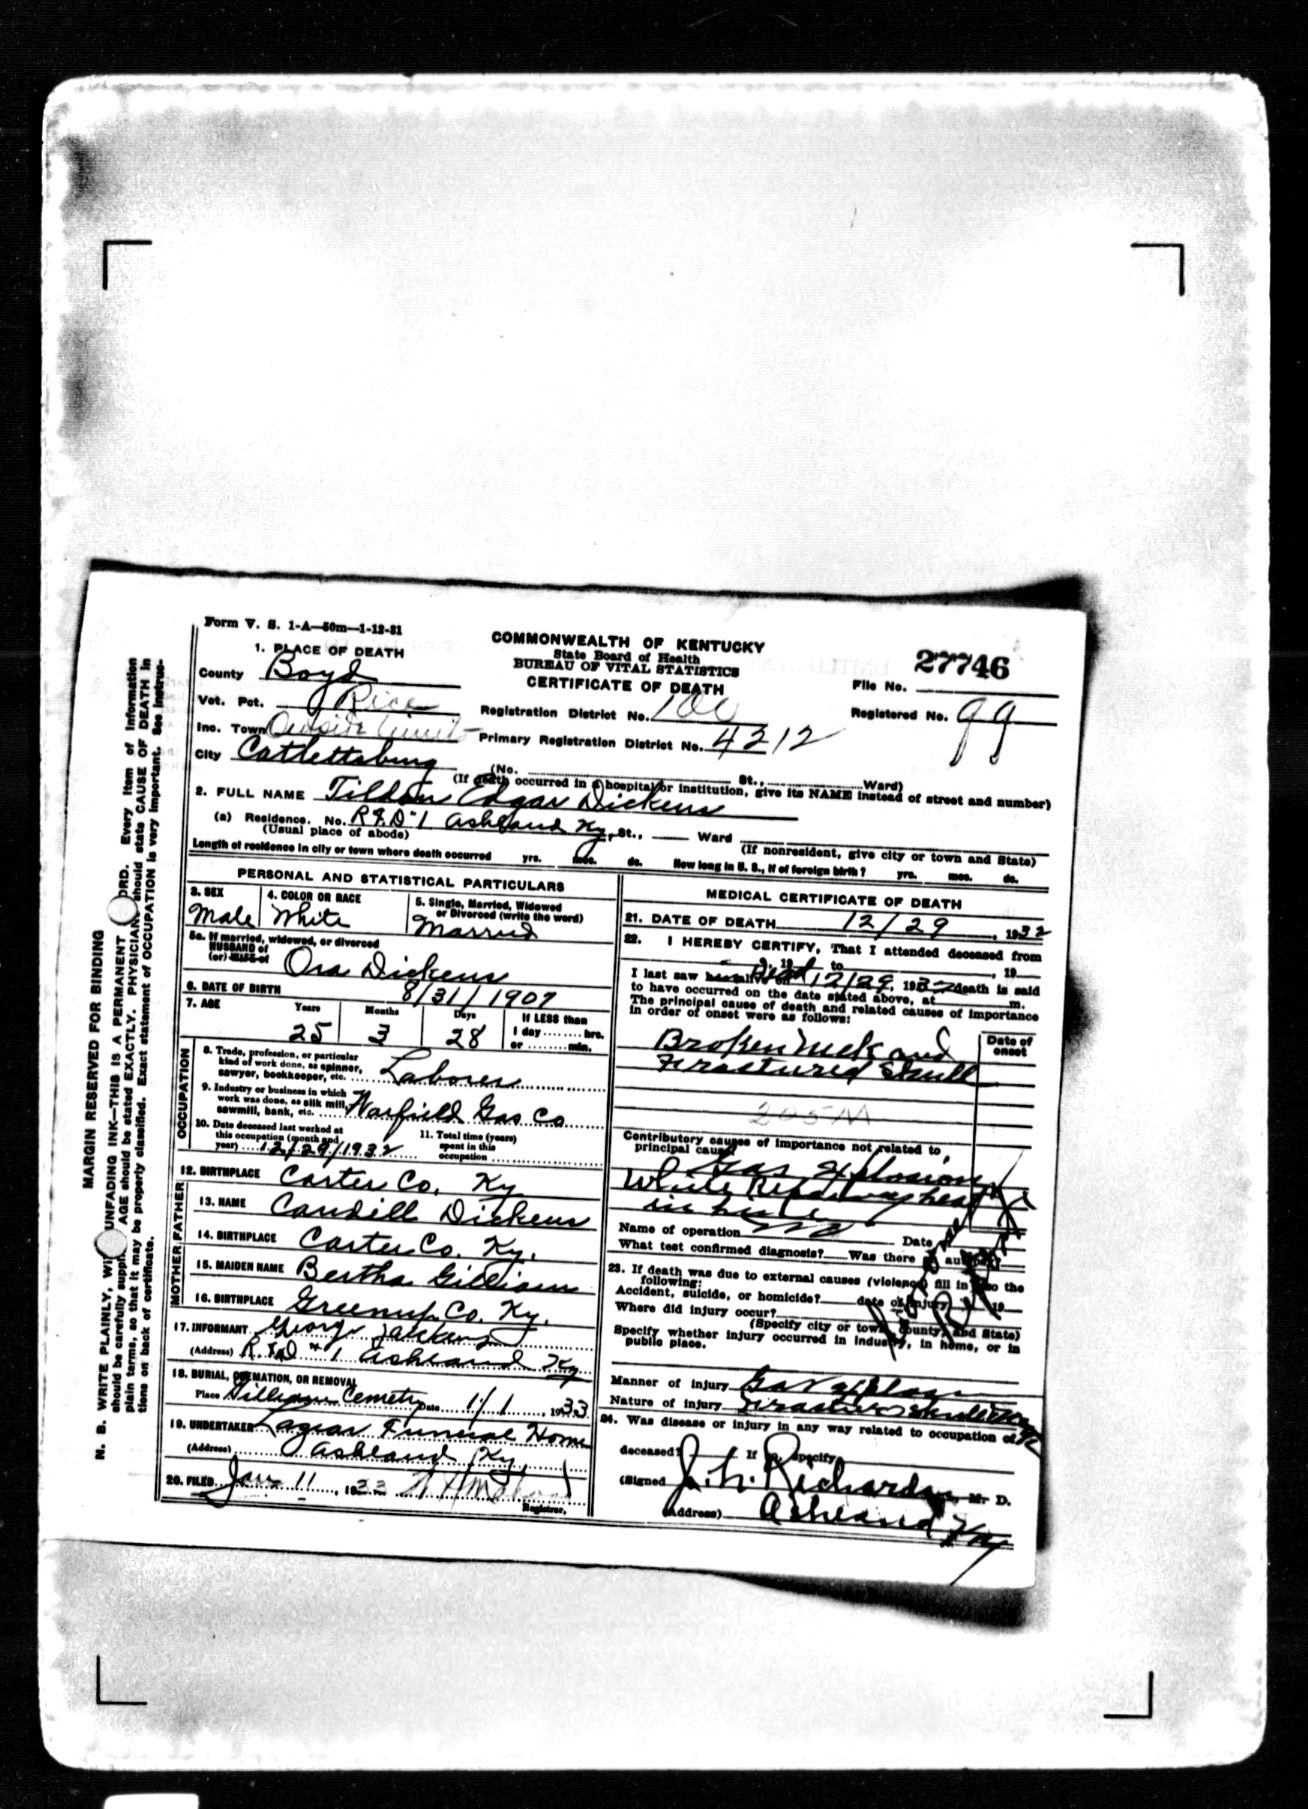 Form V. S. 1-A—50m—1-12-31
COMMONWEALTH OF KENTUCKY
State Board of Health
BUREAU OF VITAL STATISTICS
CERTIFICATE OF DEATH
27746
File No.
Registered No. 99
1. PLACE OF DEATH
County Boyd
Vot. Pct. Rice
Registration District No. 100
Inc. Town Outside Limits
Primary Registration District No. 4312
City Catlettsburg
(No. St., Ward)
(If death occurred in a hospital or institution, give its NAME instead of street and number)
2. FULL NAME Tildon Edgar Dickens
(a) Residence. No. R.F.D. 1 Ashland Ky, St., Ward
(Usual place of abode)
(If nonresident, give city or town and State)
Length of residence in city or town where death occurred yrs. mos. ds. How long in U. S., if of foreign birth? yrs. mos. ds.
PERSONAL AND STATISTICAL PARTICULARS
3. SEX
Male
4. COLOR OR RACE
White
5. Single, Married, Widowed
or Divorced (write the word)
Married
5a. If married, widowed, or divorced
HUSBAND of
(or) WIFE of Ora Dickens
6. DATE OF BIRTH 8/31/1907
7. AGE Years Months Days If LESS than
25 3 28 1 day hrs.
or min.
OCCUPATION
8. Trade, profession, or particular
kind of work done, as spinner,
sawyer, bookkeeper, etc. Laborer
9. Industry or business in which
work was done, as silk mill,
sawmill, bank, etc. Warfield Gas Co
10. Date deceased last worked at
this occupation (month and
year) 12/29/1932
11. Total time (years)
spent in this
occupation
12. BIRTHPLACE Carter Co. Ky
FATHER
13. NAME Caudill Dickens
14. BIRTHPLACE Carter Co. Ky.
MOTHER
15. MAIDEN NAME Bertha Gilliam
16. BIRTHPLACE Greenup Co. Ky.
17. INFORMANT George
(Address) R.F.D # 1 Ashland Ky
18. BURIAL, CREMATION, OR REMOVAL
Place Gilliam Cemetry Date 1/1, 1933
19. UNDERTAKER Lazear Funeral Home
(Address) Ashland Ky.
20. FILED Jan 11, 1933
Registrar.
MEDICAL CERTIFICATE OF DEATH
21. DATE OF DEATH 12/29, 1932
22. I HEREBY CERTIFY, That I attended deceased from
, 19 to , 19
I last saw h alive on Dead 12/29, 1932 death is said
to have occurred on the date stated above, at m.
The principal cause of death and related causes of importance
in order of onset were as follows:
Date of
onset
Broken neck and
Fractured Skull
205M
Contributory causes of importance not related to
principal cause:
Gas explosion
While Repairing heat
in
Name of operation no Date
What test confirmed diagnosis? Was there an autopsy?
23. If death was due to external causes (violence) fill in also the
following:
Accident, suicide, or homicide? date of injury 19
Where did injury occur?
(Specify city or town, county, and State)
Specify whether injury occurred in industry, in home, or in
public place.
Manner of injury Gas explosion
Nature of injury Fracture
24. Was disease or injury in any way related to occupation of
deceased? If so, specify
(Signed J. W. Richardson, M. D.
(Address) Ashland Ky
MARGIN RESERVED FOR BINDING
N. B. WRITE PLAINLY, WITH UNFADING INK—THIS IS A PERMANENT RECORD. Every item of information
should be carefully supplied. AGE should be stated EXACTLY. PHYSICIANS should state CAUSE OF DEATH in
plain terms, so that it may be properly classified. Exact statement of OCCUPATION is very important. See instruc-
tions on back of certificate.